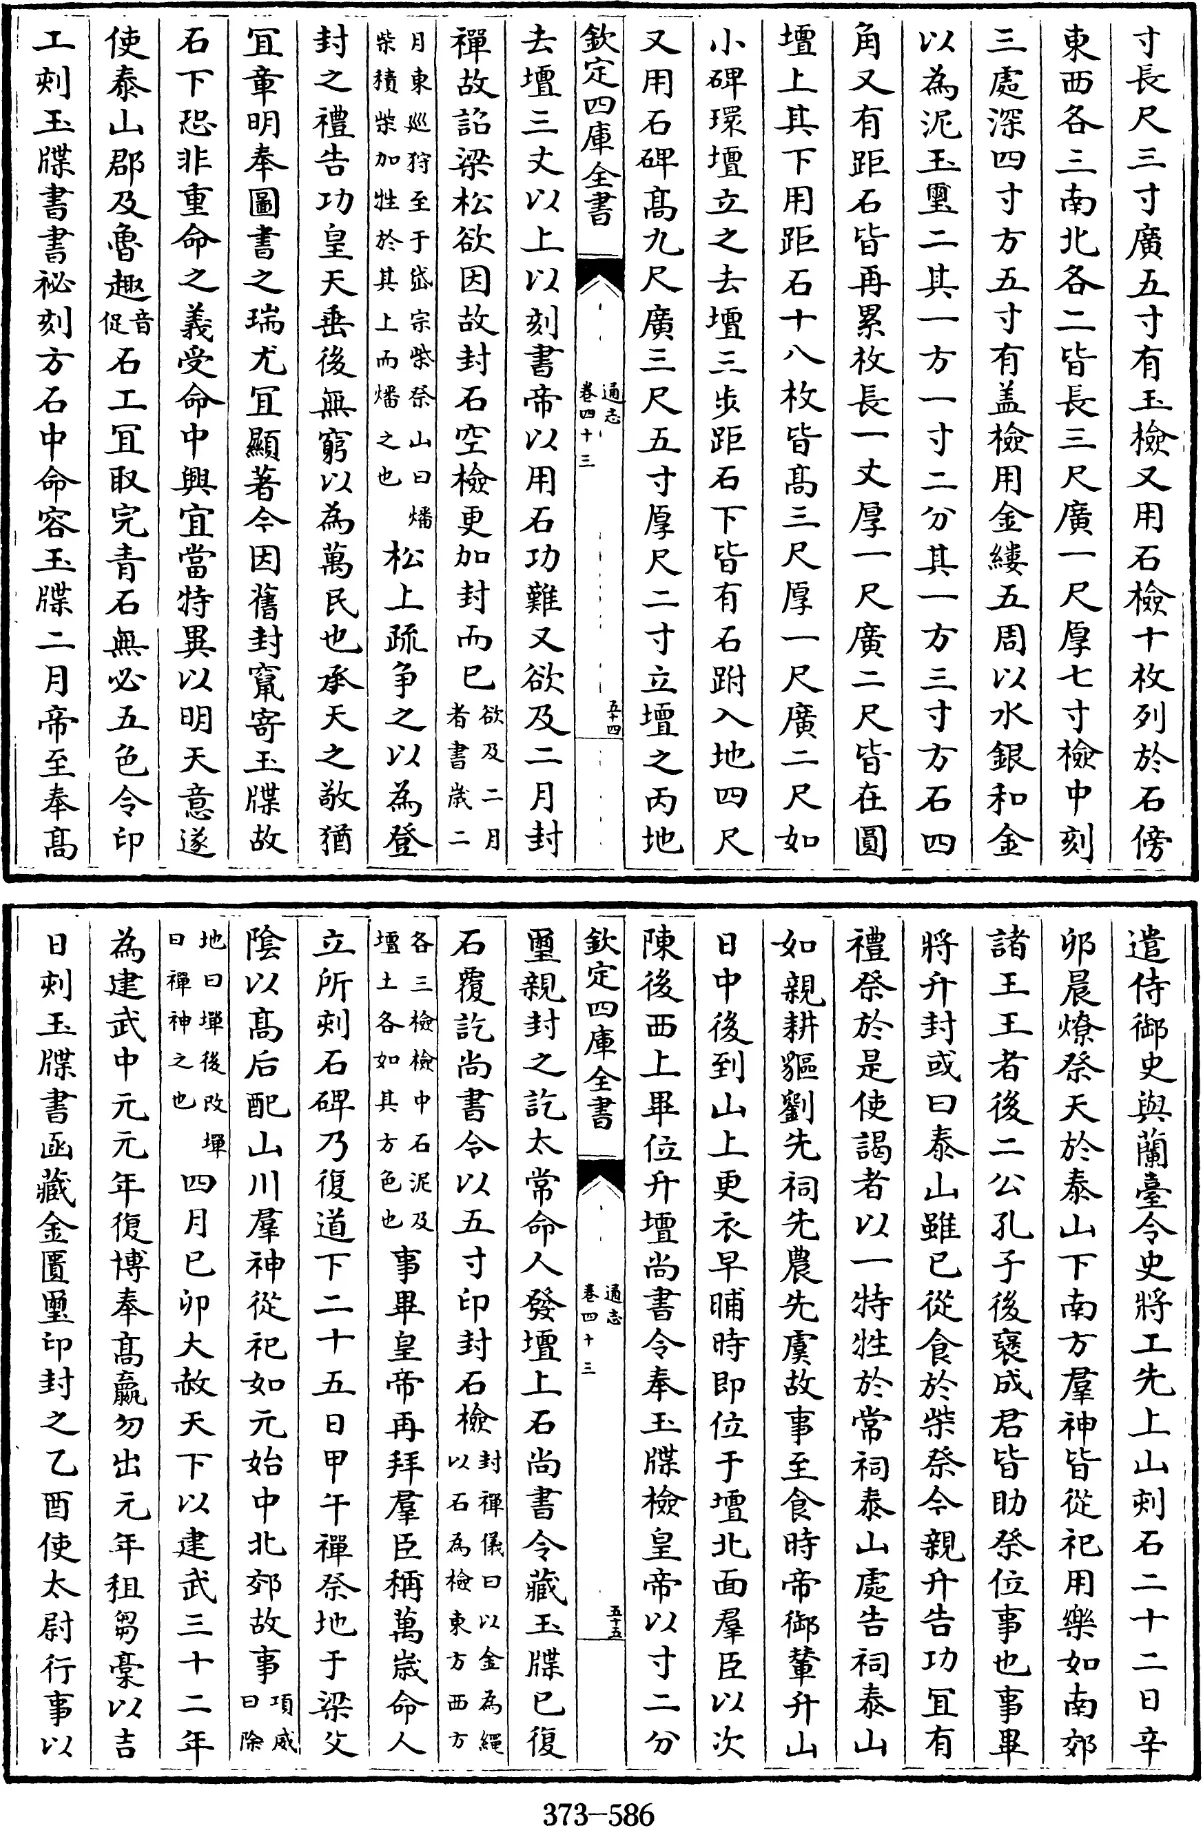 寸長尺三寸廣五寸有玉檢又用石檢十枚列於石傍
東西各三南北各二皆長三尺廣一尺厚七寸檢中刻
三處深四寸方五寸有盖檢用金縷五周以水銀和金
以為泥玉璽二其一方一寸二分其一方三寸方石四
角又有距石皆再累枚長一丈厚一尺廣二尺皆在圓
壇上其下用距石十八枚皆髙三尺厚一尺廣二尺如
小碑環壇立之去壇三步距石下皆有石跗入地四尺
又用石碑髙九尺廣三尺五寸厚尺二寸立壇之丙地
欽定四庫全書
通志
卷四十三
五十四
去壇三丈以上以刻書帝以用石功難又欲及二月封
禪故詔梁松欲因故封石空檢更加封而已欲及二月者書歲二
月東廵狩至于岱宗柴祭山曰燔柴積柴加牲於其上而燔之也松上疏争之以為登
封之禮告功皇天垂後無窮以為萬民也承天之敬猶
冝章明奉圖書之瑞尤冝顯著今因舊封竄寄玉牒故
石下恐非重命之義受命中興宜當特異以明天意遂
使泰山郡及魯趣音促石工冝取完青石無必五色令印
工刾玉牒書書祕刻方石中命容玉牒二月帝至奉髙
遣侍御史與蘭臺令史將工先上山刾石二十二日辛
卯晨燎祭天於泰山下南方羣神皆從祀用樂如南郊
諸王王者後二公孔子後褒成君皆助祭位事也事畢
將升封或曰泰山雖已從食於柴祭今親升告功冝有
禮祭於是使謁者以一特牲於常祠泰山處告祠泰山
如親耕貙劉先祠先農先虞故事至食時帝御輦升山
日中後到山上更衣早晡時即位于壇北面羣臣以次
陳後西上畢位升壇尚書令奉玉牒檢皇帝以寸二分
欽定四庫全書
通志
卷四十三
五十五
璽親封之訖太常命人發壇上石尚書令藏玉牒已復
石覆訖尚書令以五寸印封石檢封禪儀曰以金為䋲以石為檢東方西方
各三檢檢中石泥及壇土各如其方色也事畢皇帝再拜羣臣稱萬歲命人
立所刾石碑乃復道下二十五日甲午禪祭地于梁父
陰以髙后配山川羣神從祀如元始中北郊故事項威曰除
地曰墠後改墠曰禪神之也四月已卯大赦天下以建武三十二年
為建武中元元年復博奉髙嬴勿出元年租芻稾以吉
日刾玉牒書函藏金匱璽印封之乙酉使太尉行事以
373-586